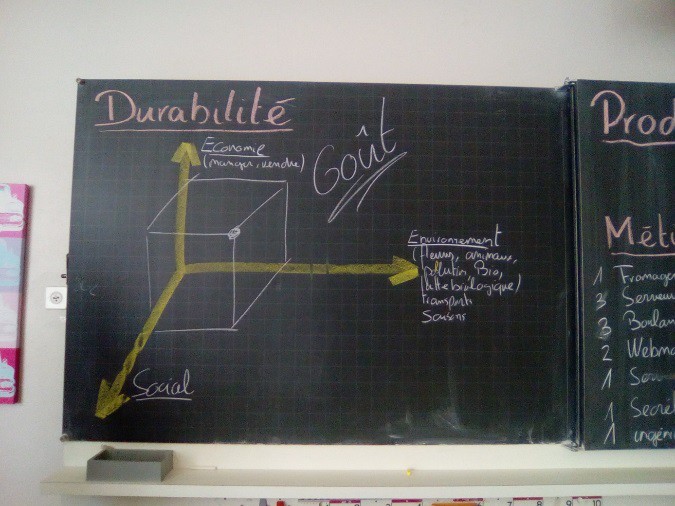 Durabilité
Economie
(manger, vendre)
Goût
Environnement
(fleurs, animaux,
pollution, Bio,
lutte biologique)
transports
Saisons
Social
Prod
Méti
1 Fromager
3 Serveu
3 Boulan
2 Webma
1
1 Secrét
1 ingéni
10